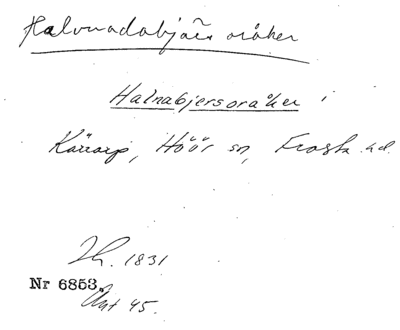 Halvnadabjärs oråker
Halnabjersoråker i
Kärrarp, Höör sn, Frosta hd.
Th. 1831
Nr 6853.
Akt 45.